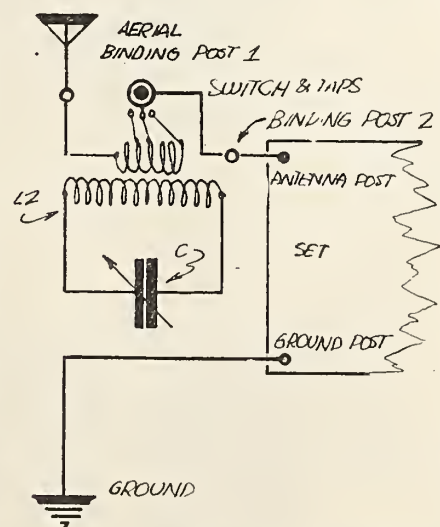 AERIAL
BINDING POST 1
SWITCH & TAPS
BINDING POST 2
ANTENNA POST
L2
C
SET
GROUND POST
GROUND